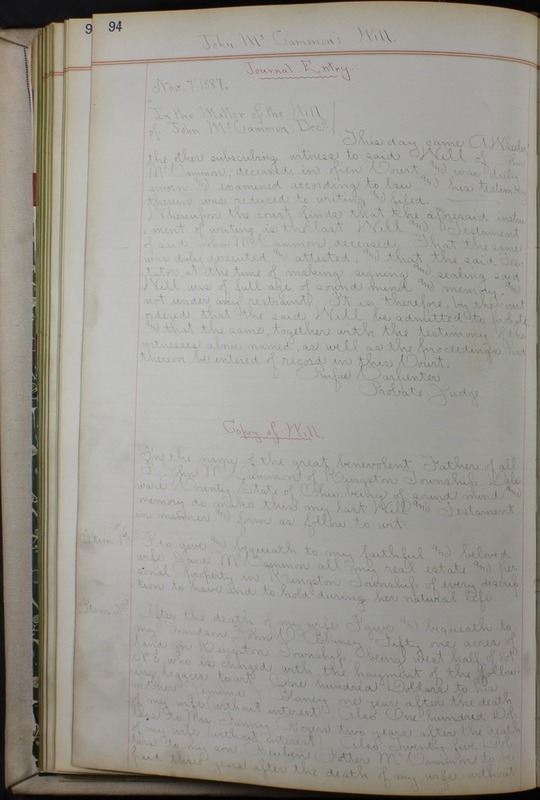 9
94
John McCammon's Will.
Journal Entry.
Nov. 7. 1887.
In the Matter of the Will
of John McCammon, Dec'd
This day came A Wheeler
the other subscribing witness to said Will of John
McCammon, deceased, in open Court and was duly
sworn and examined according to law and his testimony
therein was reduced to writing and filed.
Whereupon the court finds that the aforesaid instru
ment of writing is the last Will and Testament
of said John McCammon, deceased. That the same
was duly executed and attested, and that the said Tes-
tator at the time of making signing and sealing said
Will was of full age of sound mind and memory, and
not under any restraint. It is, therefore, by the court
ordered that the said Will be admitted to probate
and that the same, together with the testimony of the
witnesses above named, as well as the proceedings had
thereon be entered of record in this Court.
Rufus Carpenter
Probate Judge
Copy of Will.
In the name of the great benevolent Father of all
I John McCammon of Kingston Township Dela
ware County State of Ohio being of sound mind and
memory do make this my last Will and Testament
in manner and form as follow to wit:
Item 1st I do give and bequeath to my faithful and beloved
wife Jane McCammon all my real estate and per
sonal property in Kingston Township of every descrip
tion to have and to hold during her natural life
Item 2d After the death of my wife I give and bequeath to
my Grandson John Fifty one acres of
land in Kingston Township being west half of lot
No 3 who is charged with the payment of the follow-
ing legacies to wit: One hundred Dollars to his
mother one year after the death
of my wife without interest. Also One hundred Dol
lars to Mrs two years after the death
of my wife without interest. Also Twenty five Dol
lars to my son Reuben Potter McCammon to be
paid three years after the death of my wife without